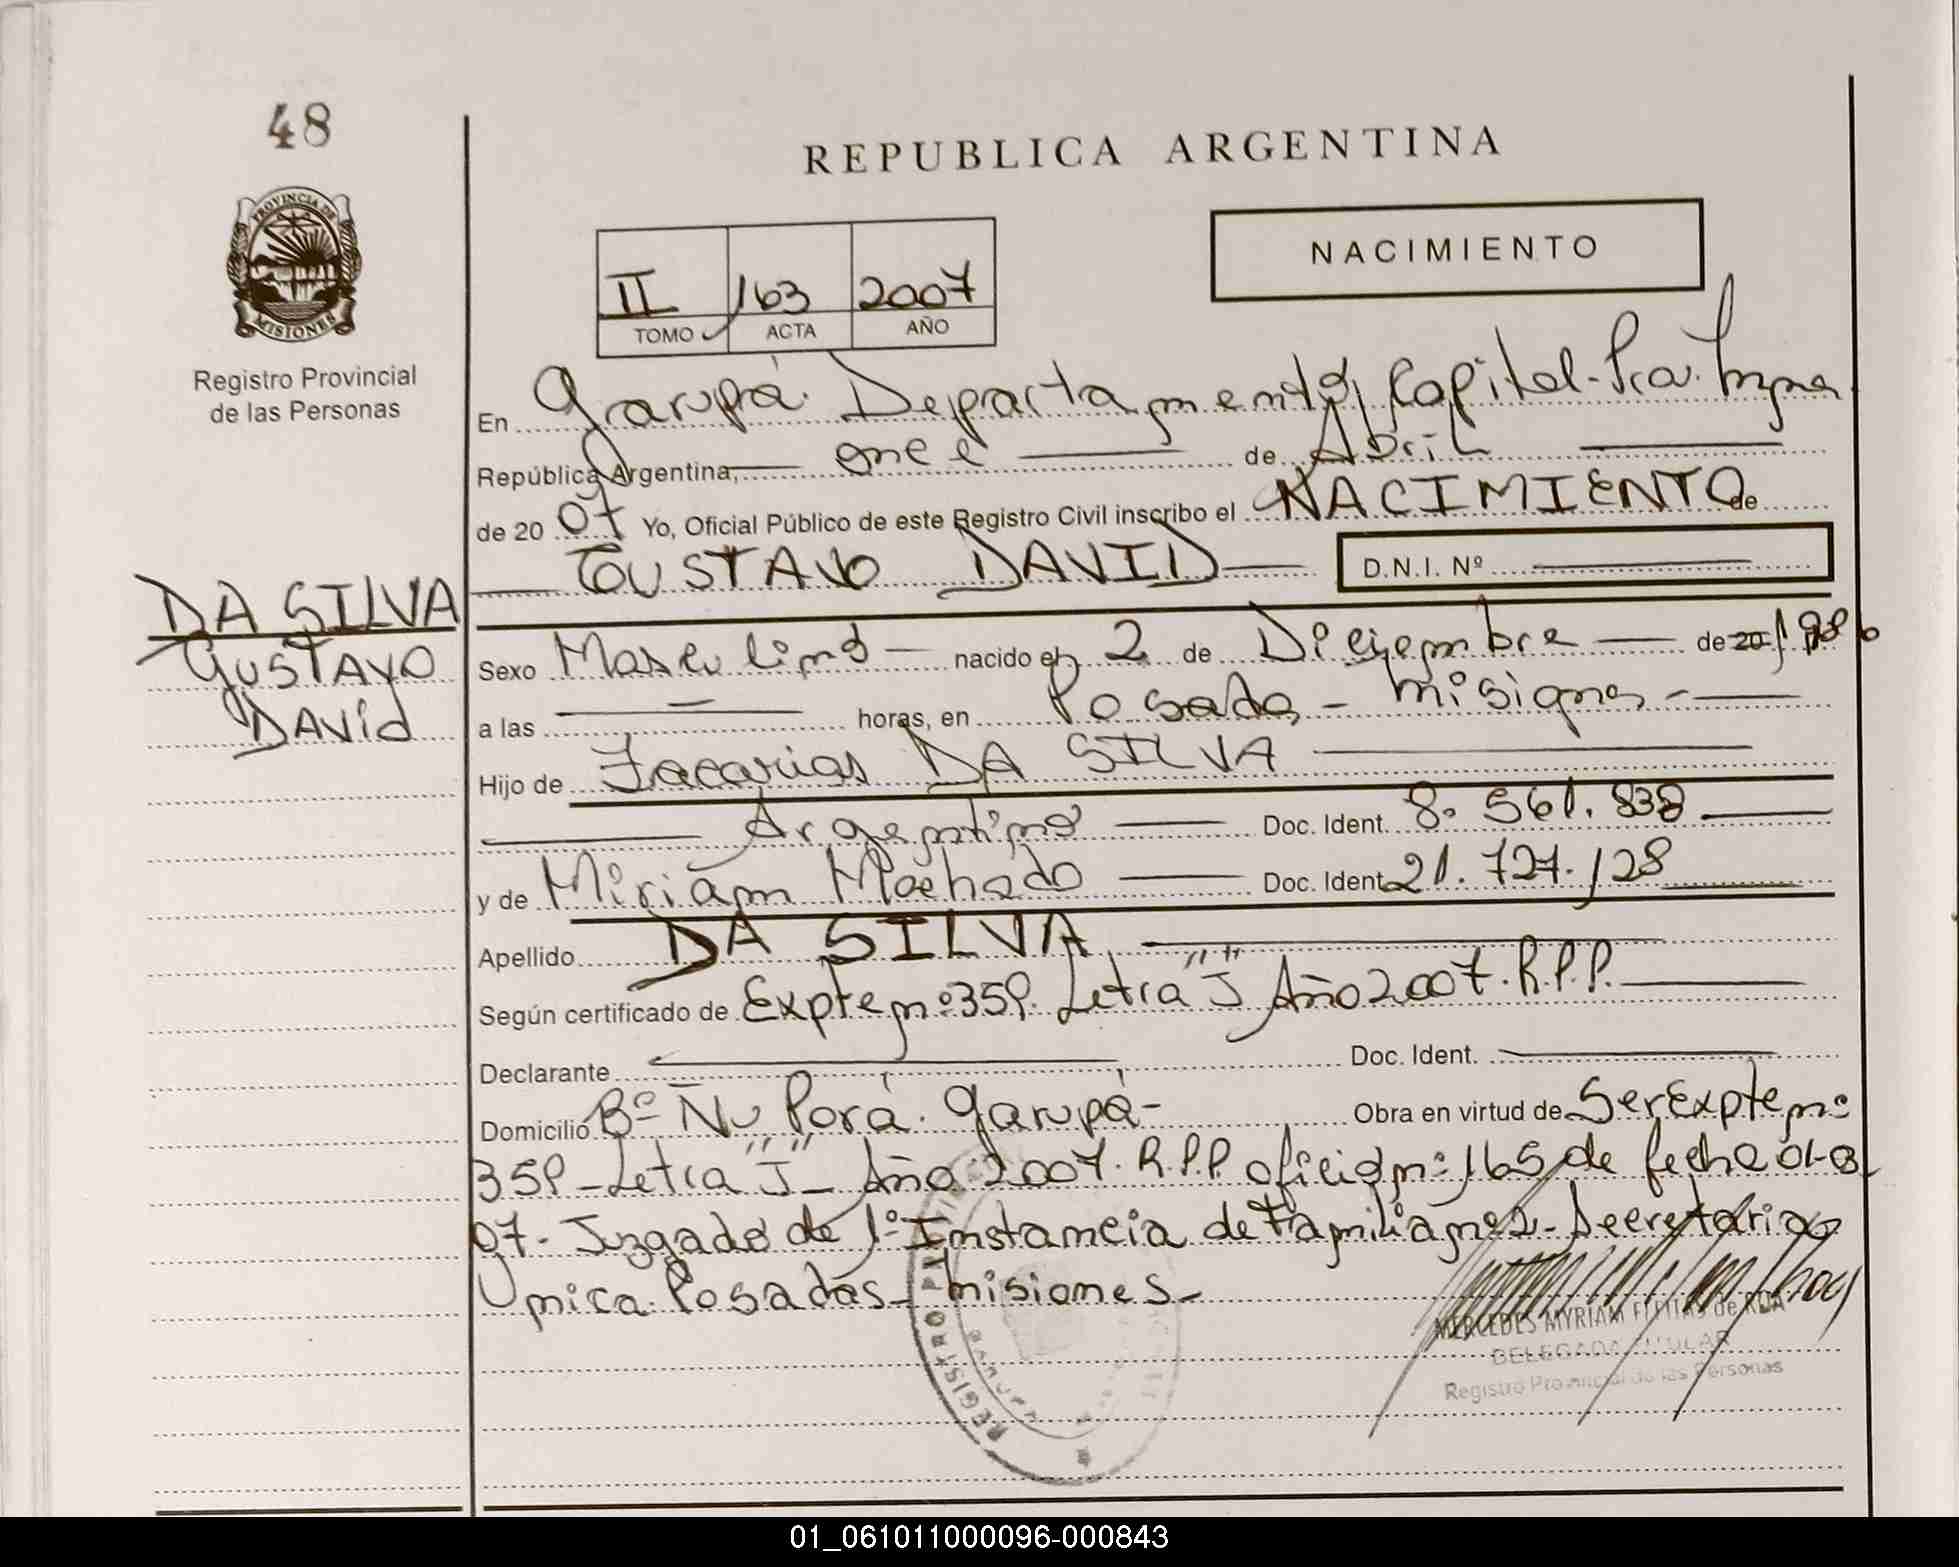 48
REPUBLICA ARGENTINA
NACIMIENTO
PROVINCIA DE
MISIONES
II 163 2007
TOMO ACTA AÑO
Registro Provincial
de las Personas
En Garupá Departamento Capital - Pcia.
República Argentina, once de Abril
de 20 07 Yo, Oficial Público de este Registro Civil inscribo el NACIMIENTO de
GUSTAVO DAVID D.N.I. Nº
DA SILVA
GUSTAVO
DAVID
Sexo Masculino nacido el 2 de Diciembre de 20 1986
a las horas, en Posadas - Misiones -
Hijo de Zacarias DA SILVA
Argentino Doc. Ident. 8. 561. 838
y de Miriam Machado Doc. Ident. 21. 727. 128
Apellido DA SILVA
Según certificado de Expte nº 359. Letra "J" Año 2007. R.P.P.
Declarante Doc. Ident.
Domicilio Bº Ñu Porá. Garupá - Obra en virtud de Ser Expte nº
359 - Letra "J" - Año 2007. R.P.P. oficio nº 165 de fecha 01-03-
07. Juzgado de 1º Instancia de Familia nº 2 - Secretaria
Unica. Posadas - Misiones -
REGISTRO
MERCEDES MYRIAM de ROA
DELEGADA TITULAR
Registro Provincial de las Personas
01_061011000096-000843